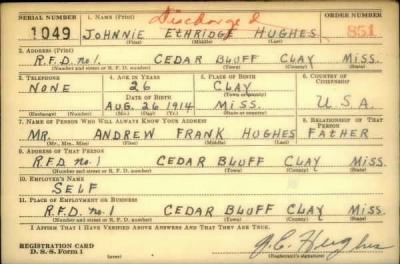 SERIAL NUMBER 1. NAME (Print) Discharged ORDER NUMBER
1049 JOHNNIE ETHRIDGE HUGHES 851
(First) (Middle) (Last)
2. ADDRESS (Print)
R.F.D. No 1. CEDAR BLUFF CLAY MISS.
(Number and street or R. F. D. number) (Town) (County) (State)
3. TELEPHONE 4. AGE IN YEARS 5. PLACE OF BIRTH 6. COUNTRY OF CITIZENSHIP
NONE 26 CLAY
DATE OF BIRTH (Town or county)
AUG. 26 1914 MISS. U.S.A.
(Exchange) (Number) (Mo.) (Day) (Yr.) (State or country)
7. NAME OF PERSON WHO WILL ALWAYS KNOW YOUR ADDRESS 8. RELATIONSHIP OF THAT PERSON
MR. ANDREW FRANK HUGHES FATHER
(Mr., Mrs., Miss) (First) (Middle) (Last)
9. ADDRESS OF THAT PERSON
R.F.D. No 1 CEDAR BLUFF CLAY MISS.
(Number and street or R. F. D. number) (Town) (County) (State)
10. EMPLOYER'S NAME
SELF
11. PLACE OF EMPLOYMENT OR BUSINESS
R.F.D. No 1 CEDAR BLUFF CLAY MISS.
(Number and street or R. F. D. number) (Town) (County) (State)
I AFFIRM THAT I HAVE VERIFIED ABOVE ANSWERS AND THAT THEY ARE TRUE.
REGISTRATION CARD
D. S. S. Form 1 J.E. Hughes
(Registrant's signature)